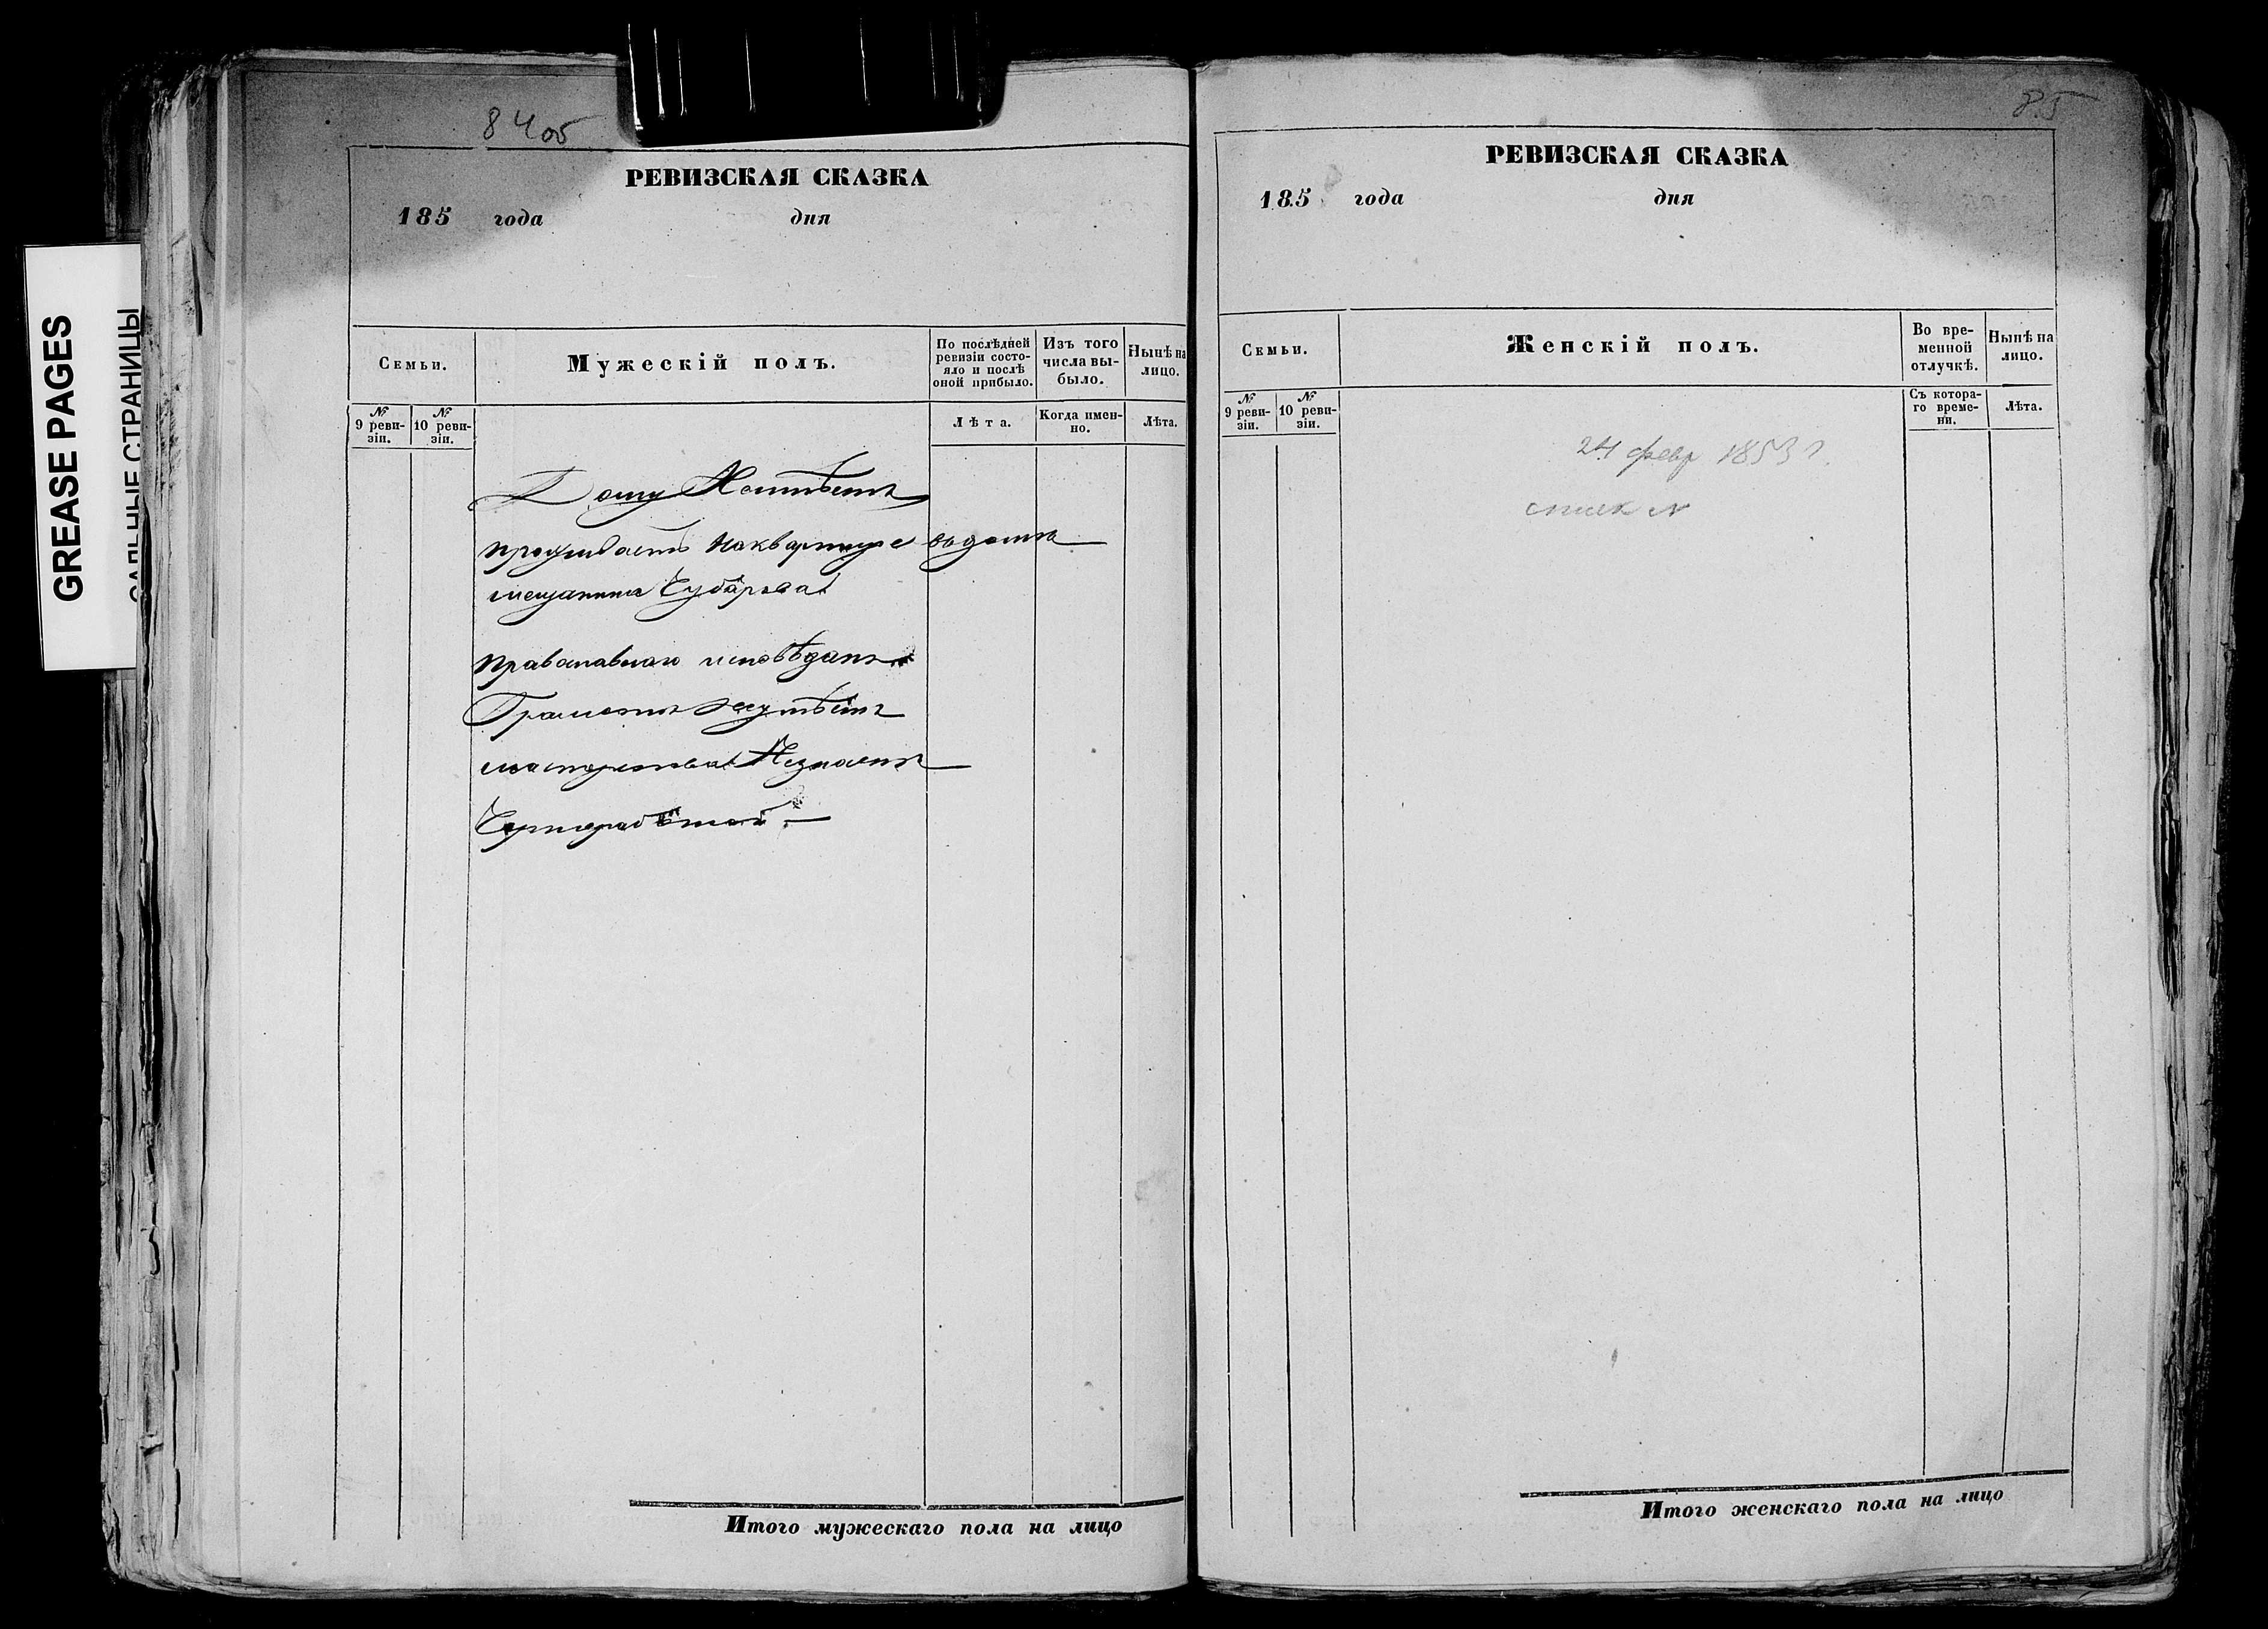 GREASE PAGES
САЛЬНЫЕ СТРАНИЦЫ
84об
РЕВИЗСКАЯ СКАЗКА
185 года дня
Семьи.
Мужескій полъ.
По послѣдней ревизіи состояло и послѣ оной прибыло.
Изъ того числа выбыло.
Нынѣ на лицо.
№ 9 ревизіи.
№ 10 ревизіи.
Лѣта.
Когда именно.
Лѣта.
Дому Неимѣетъ
проживаетъ наквартире вдоме
мещанина Чубарова
православнаго исповѣдан
Грамоте неумѣетъ
мастерства Незнаетъ
Чернорабочей
Итого мужескаго пола на лицо
85
РЕВИЗСКАЯ СКАЗКА
185 года дня
Семьи.
Женскій полъ.
Во временной отлучкѣ.
Нынѣ на лицо.
№ 9 ревизіи.
№ 10 ревизіи.
Съ котораго времени.
Лѣта.
24 февр 1853 г.
Итого женскаго пола на лицо